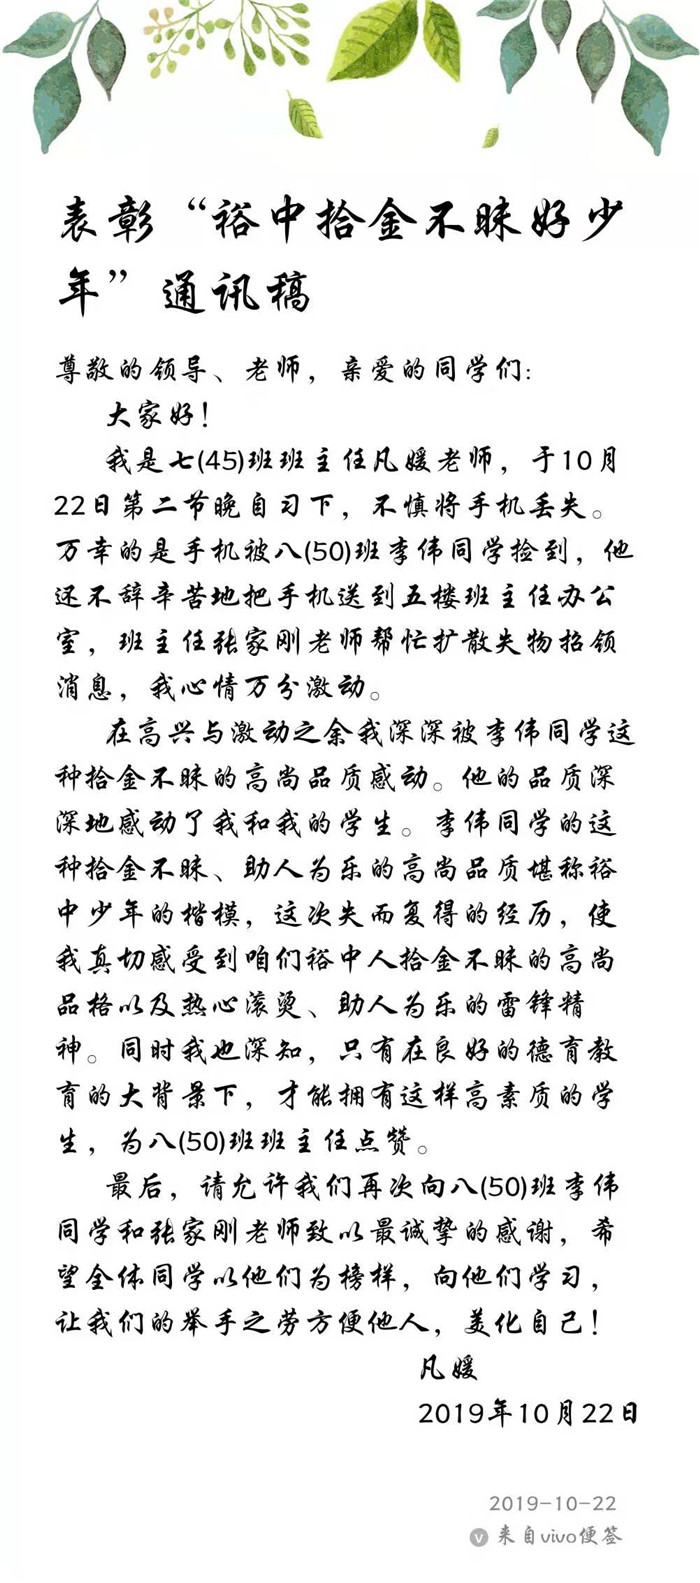 表彰“裕中拾金不昧好少
年”通讯稿
尊敬的领导、老师，亲爱的同学们:
大家好！
我是七(45)班班主任凡媛老师，于10月
22日第二节晚自习下，不慎将手机丢失。
万幸的是手机被八(50)班李伟同学捡到，他
还不辞辛苦地把手机送到五楼班主任办公
室，班主任张家刚老师帮忙扩散失物招领
消息，我心情万分激动。
在高兴与激动之余我深深被李伟同学这
种拾金不昧的高尚品质感动。他的品质深
深地感动了我和我的学生。李伟同学的这
种拾金不昧、助人为乐的高尚品质堪称裕
中少年的楷模，这次失而复得的经历，使
我真切感受到咱们裕中人拾金不昧的高尚
品格以及热心滚烫、助人为乐的雷锋精
神。同时我也深知，只有在良好的德育教
育的大背景下，才能拥有这样高素质的学
生，为八(50)班班主任点赞。
最后，请允许我们再次向八(50)班李伟
同学和张家刚老师致以最诚挚的感谢，希
望全体同学以他们为榜样，向他们学习，
让我们的举手之劳方便他人，美化自己！
凡媛
2019年10月22日
2019-10-22
v 来自vivo便签